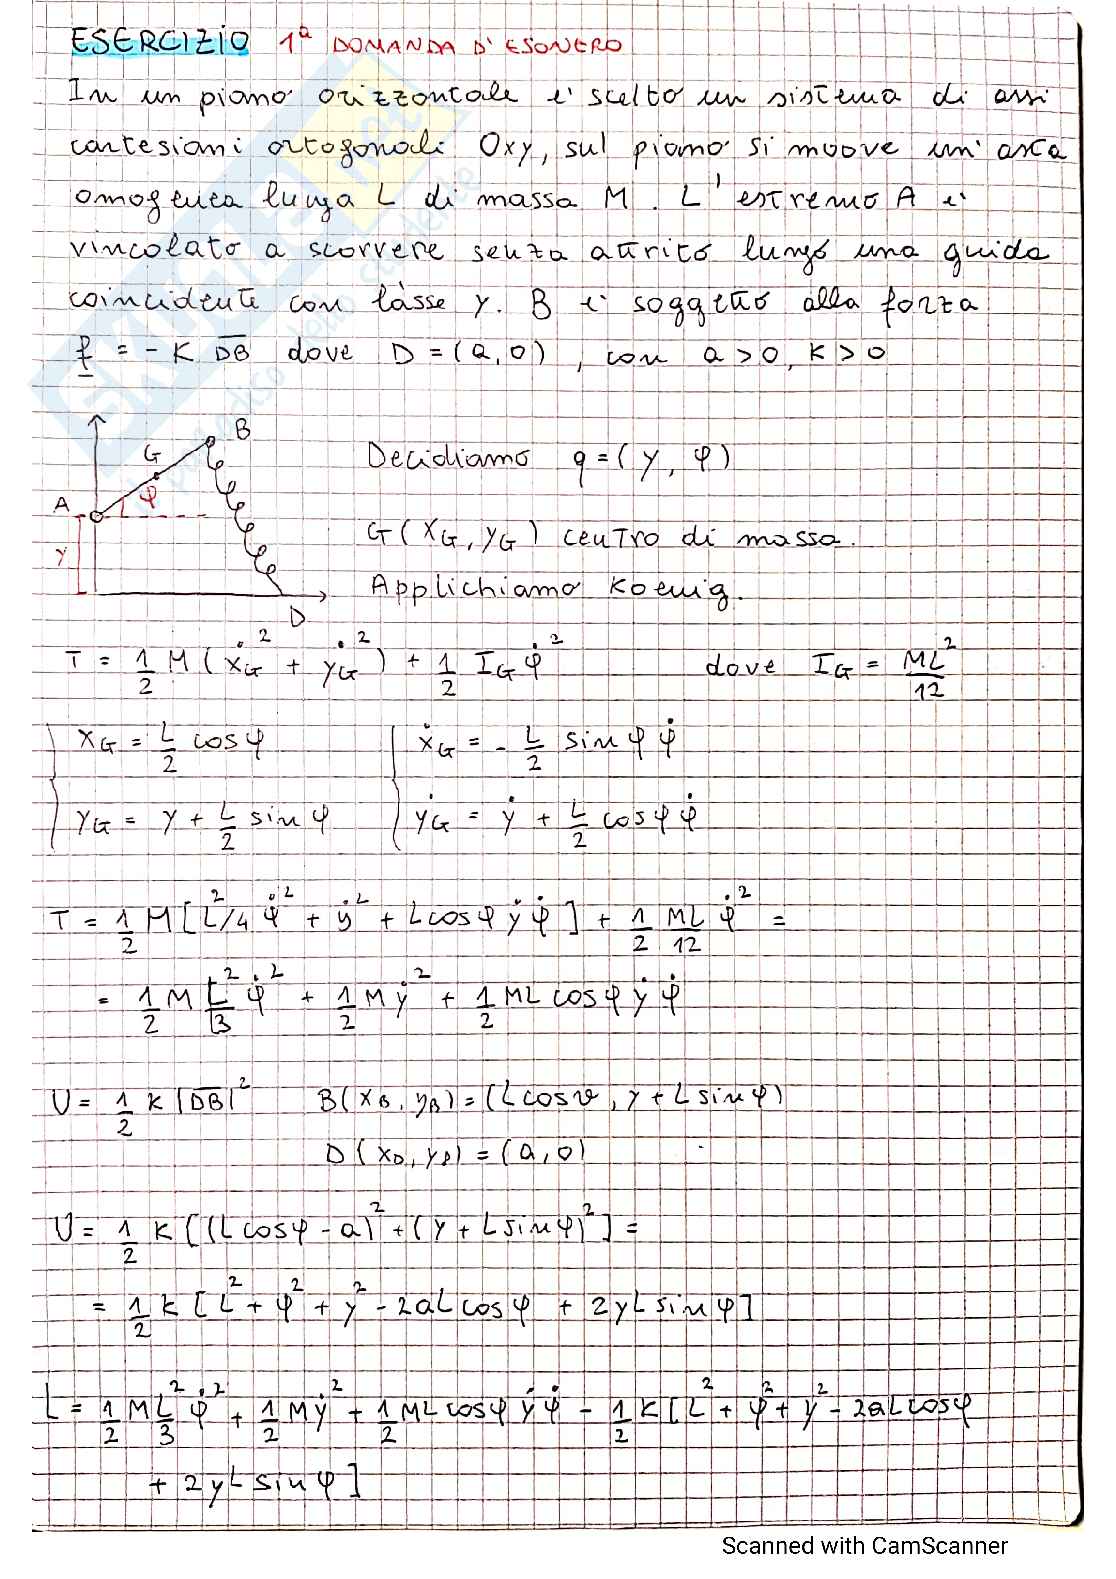 ESERCIZIO 1ª DOMANDA D'ESONERO
In un piano orizzontale e' scelto un sistema di assi
cartesiani ortogonali Oxy, sul piano si muove un'asta
omogenea lunga L di massa M. L'estremo A e'
vincolato a scorrere senza attrito lungo una guida
coincidente con l'asse y. B e' soggetto alla forza
f = - K DB dove D = (a, 0), con a > 0, K > 0
B
G
φ
A
y
D
Decidiamo q = (y, φ)
G(xG, yG) centro di massa.
Applichiamo Koenig.
T = 1/2 M (ẋG² + ẏG²) + 1/2 IG φ̇² dove IG = ML²/12
xG = L/2 cosφ ẋG = - L/2 sinφ φ̇
yG = y + L/2 sinφ ẏG = ẏ + L/2 cosφ φ̇
T = 1/2 M [L²/4 φ̇² + ẏ² + L cosφ ẏ φ̇] + 1/2 ML/12 φ̇² =
= 1/2 M L²/3 φ̇² + 1/2 M ẏ² + 1/2 ML cosφ ẏ φ̇
U = 1/2 K |DB|² B(xB, yB) = (L cosϑ, y + L sinφ)
D(xD, yD) = (a, 0)
U = 1/2 K [(L cosφ - a)² + (y + L sinφ)²] =
= 1/2 K [L² + φ² + y² - 2aL cosφ + 2yL sinφ]
L = 1/2 M L²/3 φ̇² + 1/2 M ẏ² + 1/2 ML cosφ ẏ φ̇ - 1/2 K [L² + φ² + y² - 2aL cosφ
+ 2yL sinφ]
Scanned with CamScanner